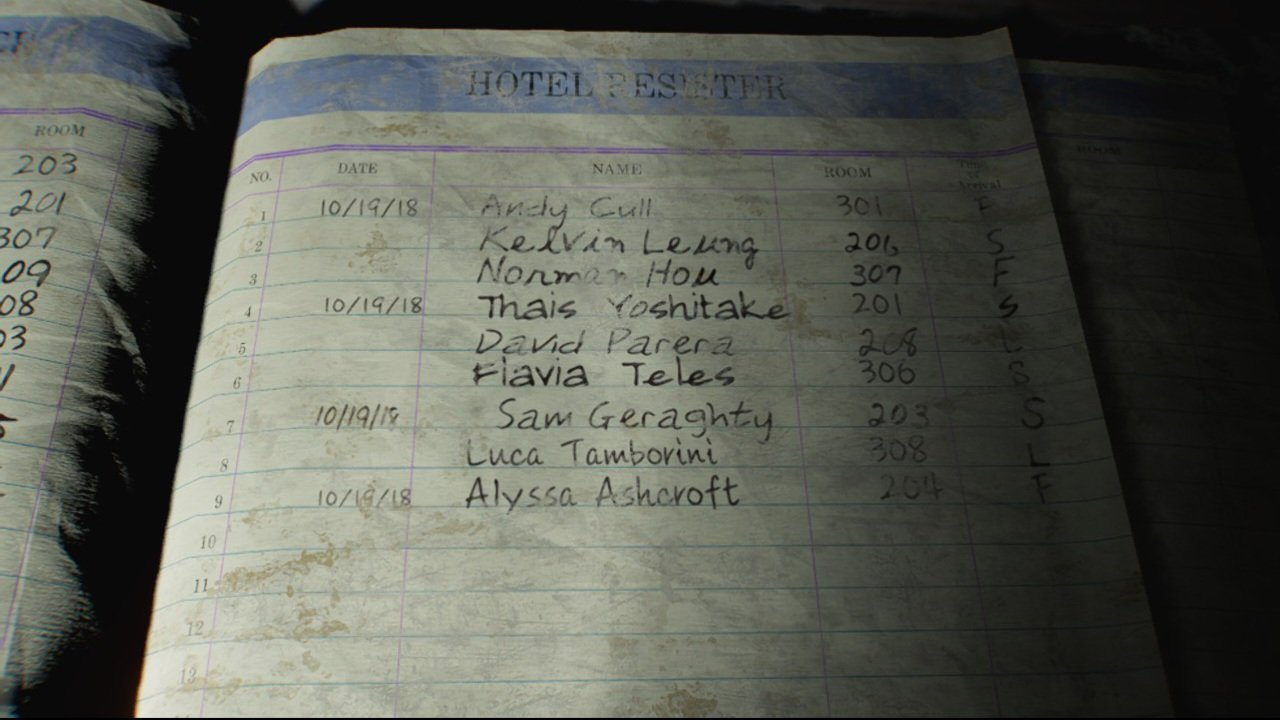 HOTEL RESISTER
ROOM
203
201
307
09
08
03
NO. DATE NAME ROOM Time of Arrival
1 10/19/18 Andy Cull 301 F
2 Kelvin Leung 206 S
3 Norman Hou 307 F
4 10/19/18 Thais Yoshitake 201 S
5 David Parera 208 L
6 Flavia Teles 306 S
7 10/19/18 Sam Geraghty 203 S
8 Luca Tamborini 308 L
9 10/19/18 Alyssa Ashcroft 204 F
10
11
12
13
ROOM